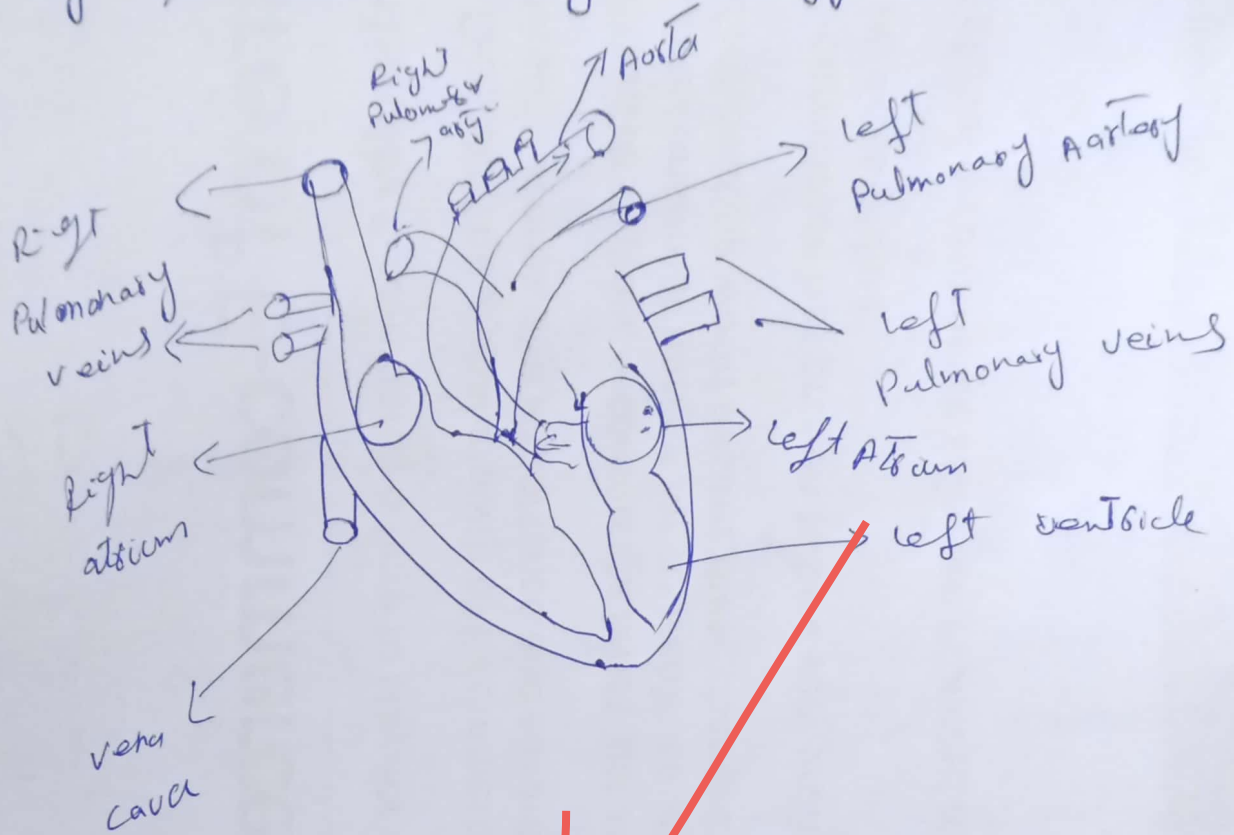 Aorta
Right
Pulomoser
left
Pulmonary Aartary
Right
Pulmonary
veins
left
Pulmonary veins
left Atrium
Right
atrium
left ventricle
vena
cava